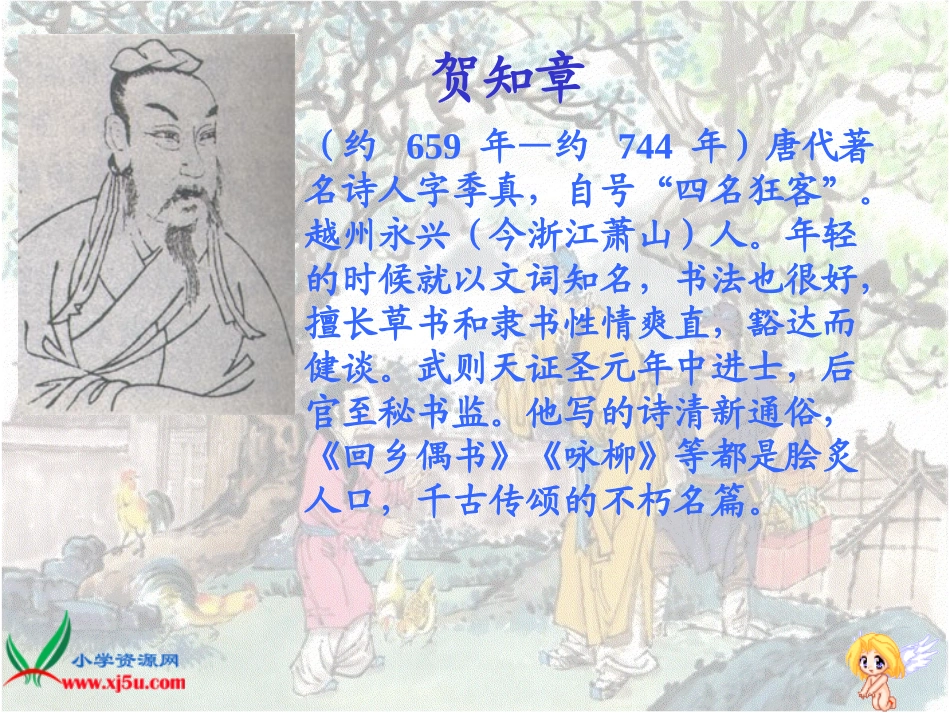 贺知章
（约 659 年—约 744 年）唐代著
名诗人字季真，自号“四名狂客”。
越州永兴（今浙江萧山）人。年轻
的时候就以文词知名，书法也很好，
擅长草书和隶书性情爽直，豁达而
健谈。武则天证圣元年中进士，后
官至秘书监。他写的诗清新通俗，
《回乡偶书》《咏柳》等都是脍炙
人口，千古传颂的不朽名篇。
小学资源网
www.xj5u.com